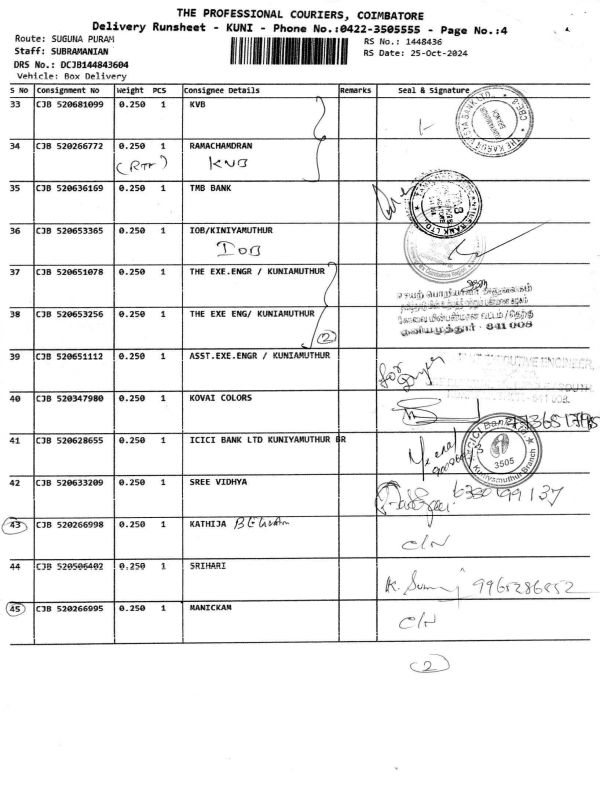 THE PROFESSIONAL COURIERS, COIMBATORE
Delivery Runsheet - KUNI - Phone No.:0422-3505555 - Page No.:4
Route: SUGUNA PURAM
RS No.: 1448436
Staff: SUBRAMANIAN
RS Date: 25-Oct-2024
DRS No.: DCJB144843604
Vehicle: Box Delivery
S No Consignment No Weight PCS Consignee Details Remarks Seal & Signature
33 CJB 520681099 0.250 1 KVB
34 CJB 520266772 0.250 1 RAMACHAMDRAN
KVB
35 CJB 520636169 0.250 1 TMB BANK
36 CJB 520653365 0.250 1 IOB/KINIYAMUTHUR
IOB
37 CJB 520651078 0.250 1 THE EXE.ENGR / KUNIAMUTHUR
38 CJB 520653256 0.250 1 THE EXE ENG/ KUNIAMUTHUR
குனியமுத்தூர் - 641 008
2
39 CJB 520651112 0.250 1 ASST.EXE.ENGR / KUNIAMUTHUR
for
40 CJB 520347980 0.250 1 KOVAI COLORS
41 CJB 520628655 0.250 1 ICICI BANK LTD KUNIYAMUTHUR BR
ICICI Bank Ltd
3505
Kuniyamuthur Branch
42 CJB 520633209 0.250 1 SREE VIDHYA
43 CJB 520266998 0.250 1 KATHIJA
C/N
44 CJB 520506402 0.250 1 SRIHARI
45 CJB 520266995 0.250 1 MANICKAM
C/N
2